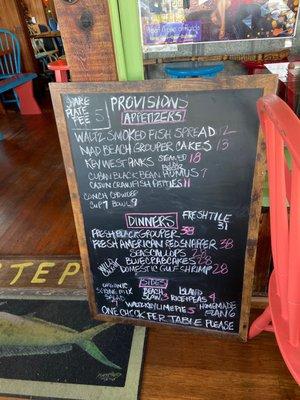 SHARE
PLATE
FEE
5
PROVISIONS
APPETIZERS
WALTZ SMOKED FISH SPREAD 12
MAD BEACH GROUPER CAKES 13
KEY WEST PINKS STEAMED 18
CUBAN BLACK BEAN HUMUS 7
CAJUN CRAWFISH FRITTERS 11
CONCH CHOWDER
CUP 7 BOWL 9
DINNERS
FRESH TILE
31
FRESH BLACK GROUPER 38
FRESH AMERICAN RED SNAPPER 38
SEA SCALLOPS 28
BLUE CRAB CAKES 28
DOMESTIC GULF SHRIMP 28
SIDES
ORGANIC
SPRING MIX
BEACH
SLAW 3
ISLAND
RICE & PEAS 4
HOMEMADE
FLAN 6
WALTZ KEY LIME PIE 5
ONE CHECK PER TABLE PLEASE
STEP